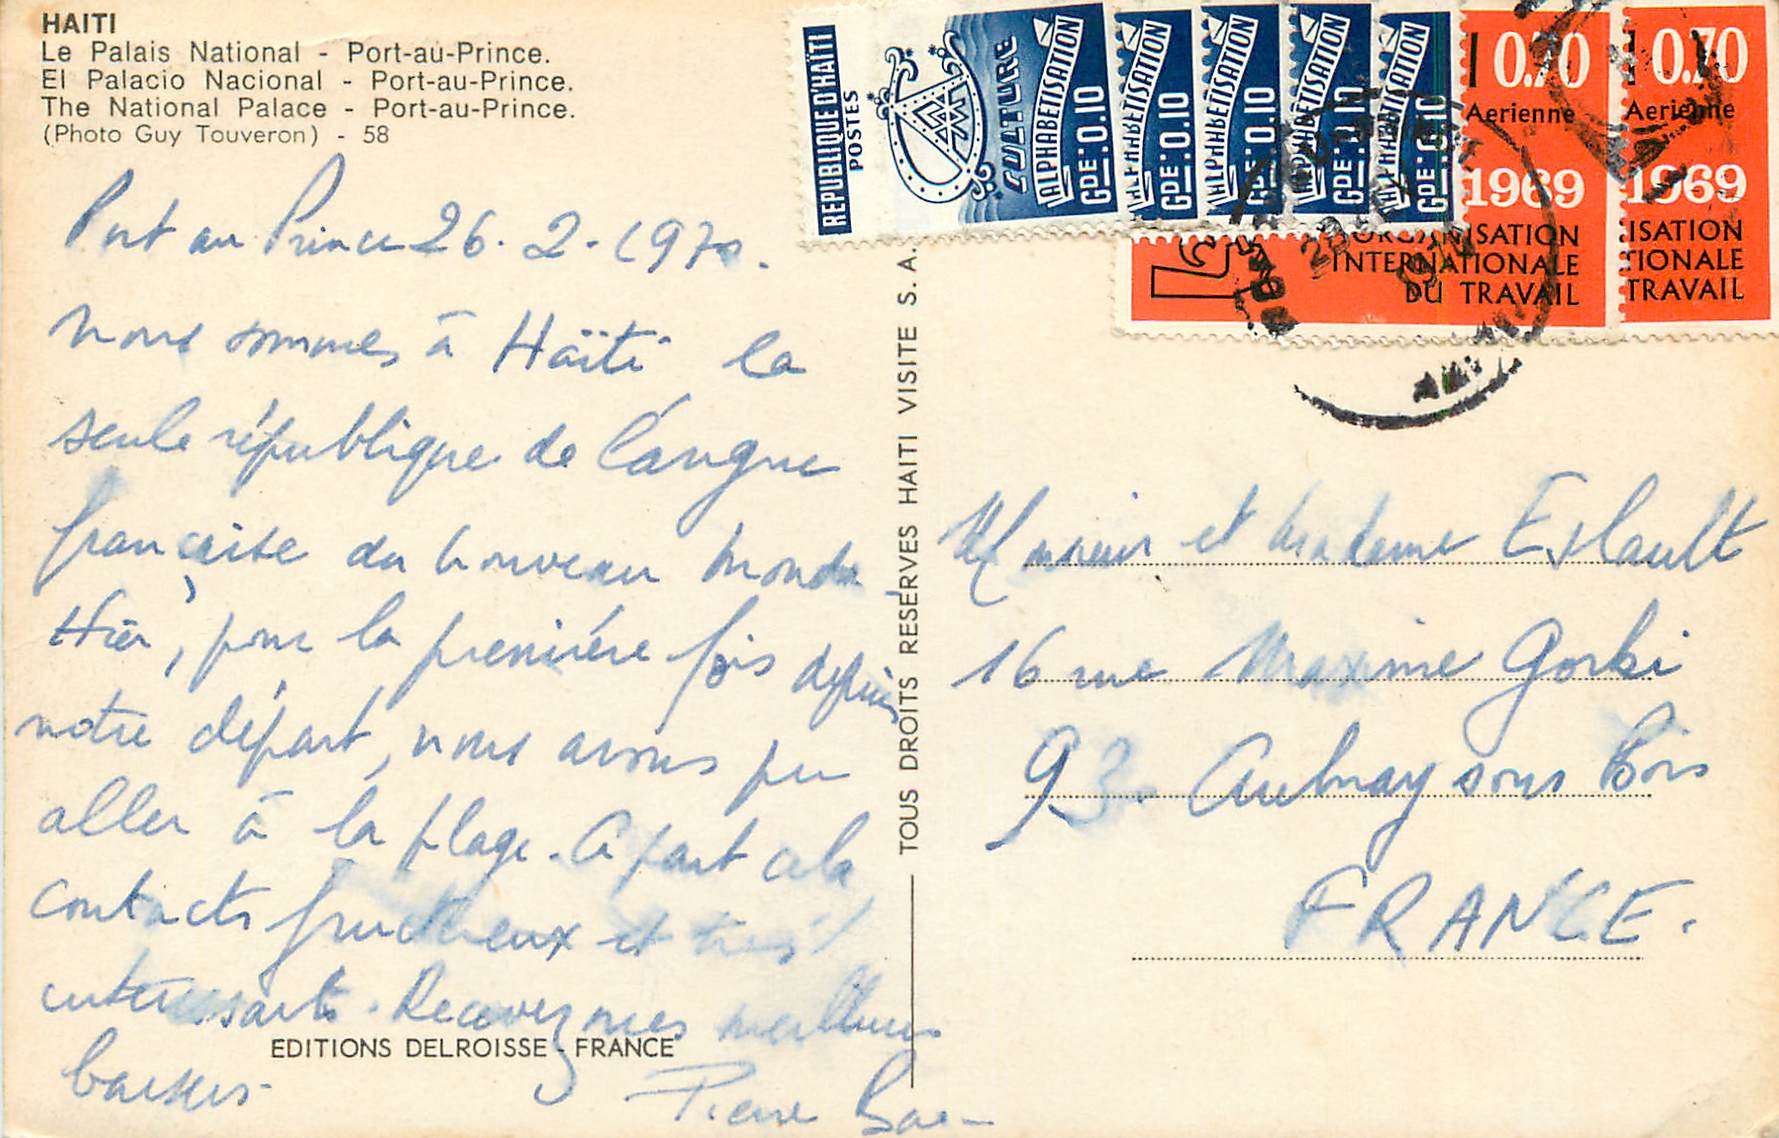 HAITI
Le Palais National - Port-au-Prince.
El Palacio Nacional - Port-au-Prince.
The National Palace - Port-au-Prince.
(Photo Guy Touveron) - 58
Port au Prince 26.2.1970.
Nous sommes à Haïti la
seule république de langue
française du nouveau monde
Hier, pour la première fois depuis
notre départ, nous avons pu
aller à la plage. A part cela
contacts fructueux et très
intéressants. Recevez mes meilleurs
baisers
Pierre
EDITIONS DELROISSE - FRANCE
TOUS DROITS RESERVES HAITI VISITE S. A.
REPUBLIQUE D'HAÏTI
POSTES
CULTURE
ALPHABETISATION
GDE: 0.10
ALPHABETISATION
GDE: 0.10
ALPHABETISATION
GDE: 0.10
ALPHABETISATION
GDE: 0.10
ALPHABETISATION
GDE: 0.10
0.70
Aerienne
1969
ORGANISATION
INTERNATIONALE
DU TRAVAIL
0.70
Aerienne
1969
ISATION
TIONALE
TRAVAIL
Monsieur et Madame
16 rue Maxime Gorki
93. Aulnay sous Bois
FRANCE.